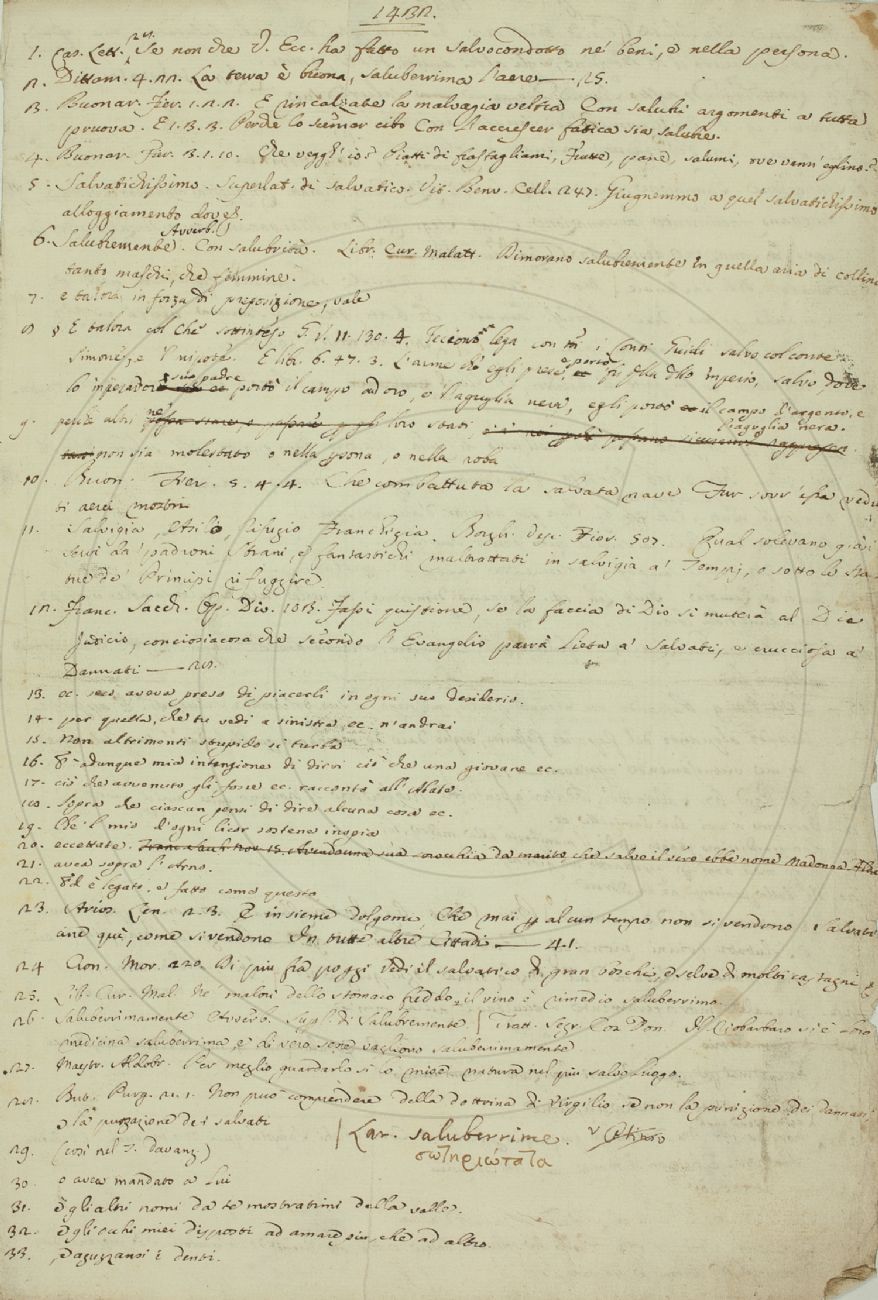 1432.
1. Cas. Lett. 28. Se non che V. Ecc. ha fatto un salvocondotto ne' beni, e nella persona.
2. Dittam. 4. 22. La terra è buona, saluberrima l'aere — 25.
3. Buonar. Fier. 1. 2. 2. E rincalzate la malvagia veltra Con saluti argomenti a tutta
pruova. E 1. 3. 3. Perche lo scemar cibo Con l'accrescer fatica sia salute.
4. Buonar. Fier. 3. 1. 10. Che vegg' io? Piatti di frastagliami, Frutte, pane, salumi,
5. Salvatichissimo. Superlat. di salvatico. Vit. Benv. Cell. 247. Giugnemmo a quel salvatichissimo
alloggiamento dove
Avverb.
6. Salubremente. Con salubrità. Libr. Cur. Malatt. Dimorano salubremente in quella aria di colline
tanto maschi, che femmine.
7. e talora in forza di preposizione, vale
8 E talora col che sottinteso G. V. 11. 130. 4. lega con i Conti Guidi salvo col conte
Simone, e 'l nipote. E libr. 6. 47. 3. L'arme che egli prese, e portò salvo dove
suo padre
lo imperadore portò il campo ad oro, e l'aguglia nera, egli portò il campo d'argento, e
l'aguglia nera.
9. perchè altri ne' loro stati
non sia molestato o nella persona, o nella roba
10. Buon. Fier. 5. 4. 4. Che combattuta la salvata nave Fur sovr' essa vedu
ti aerei mostri
11. Salvigia, Asilo, Rifugio Franchigia. Borgh. Orig. Fior. 507. Qual solevano già i
servi da' padroni strani, e fantastichi maltrattati in salvigia a' Tempj, o sotto le Sta-
tue de' Principi rifuggire
12. Franc. Sacch. Op. Div. 103. Fassi quistione, se la faccia di Dio si muterà al Die
Judicio, conciosiacosa che secondo l'Evangelio parrà lieta a' salvati, e crucciosa a'
Dannati — 28.
13. ec. seco aveva preso di piacerli in ogni suo desiderio.
14. per quella, che tu vedi a sinistra ec. n'andrai
15. Non altrimenti stupido si turba
16. È adunque mia intenzione di dirvi ciò che una giovane ec.
17. ciò che avvenuto gli fosse ec. raccontò all'Abate.
18. Sopra che ciascun pensi di dire alcuna cosa ec.
19. Che 'l mio d'ogni licor sostene inopia
20. eccettate. Franc. Sacch. Nov. 15. Avendo una sua sirocchia da marito che salvo il vero ebbe nome Madonna Alda
21. avea sopra l'Arno.
22. Ed è legato, e fatto come questo
23. Arios. Len. 2. 3. E insieme dolgomi Che mai per alcun tempo non si vendono i salvati
ane quì, come si vendono In tutte altre Cittadi — 41.
24 Cron. Mor. 220. Di più fra poggi vedi il salvatico di gran boschi, e selve di molti castagni
25. Lib. Cur. Mal. Ne' malori dello stomaco freddo il vino è rimedio saluberrimo.
26. Saluberrimamente Avverb. Superl. di Salubremente | Tratt. Segr. Cos. Don. Il Riobarbaro si è loro
medicina saluberrima, e di vero sene vagliono saluberrimamente
27. Maestr. Aldobr. Per meglio guardarlo si lo mise natura nel più salvo luogo.
28. But. Purg. 21. 1. Non può comprendere della dottrina di Virgilio, se non la punizione dei dannati
e la purgazione dei salvati
| Lat. saluberrime. v
σωτηριώτατα
29. (così nel T. Davanz)
30. o avea mandato a lui
31. E gli altri nomi da te mostratimi della valle.
32. E gli occhi miei disposti ad amare più, che ad altro.
33. ed aguzzansi i denti.